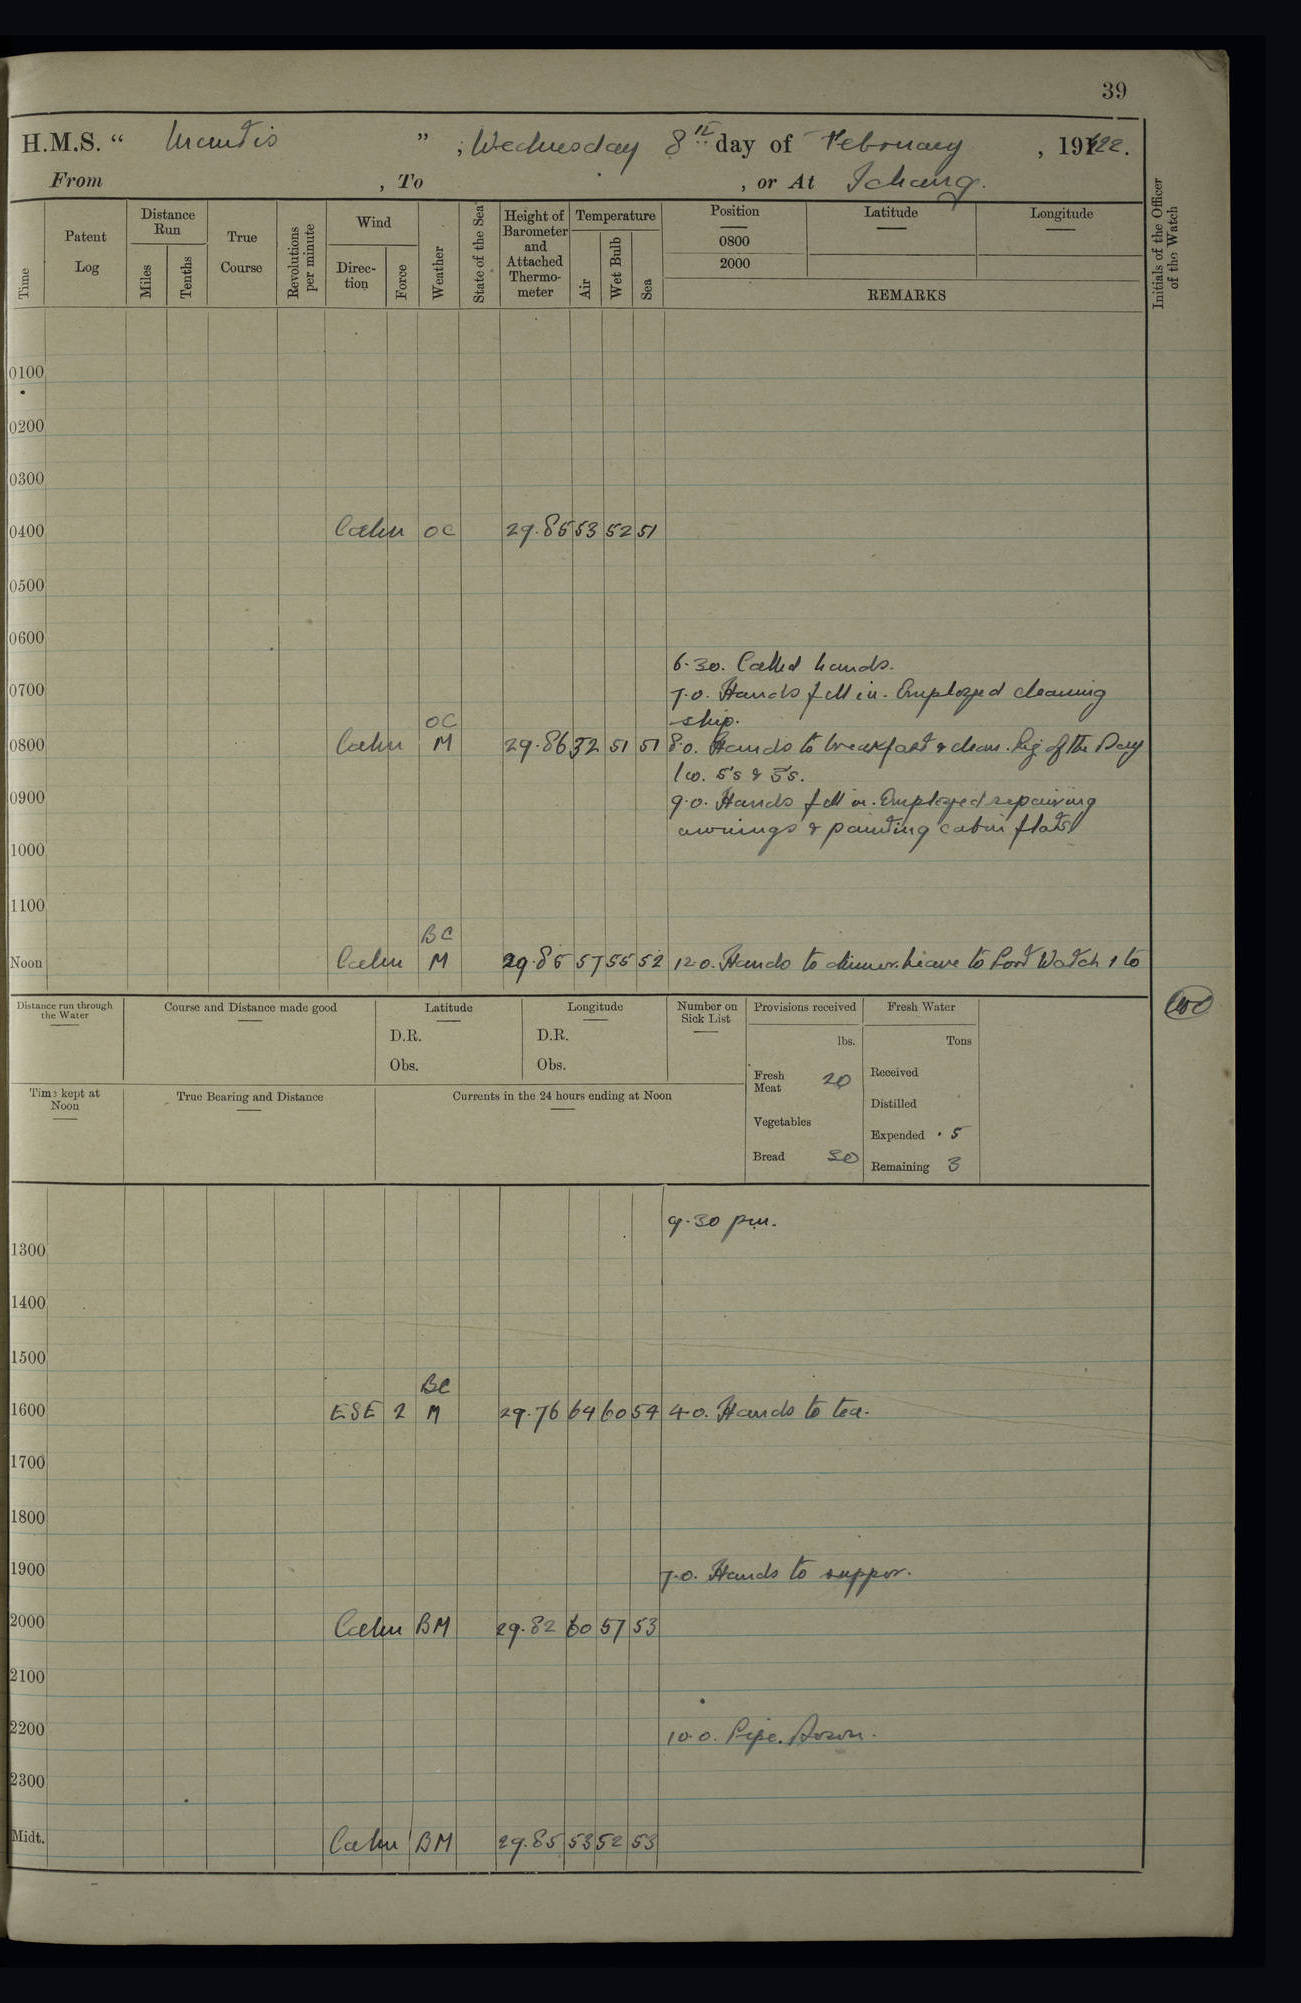 39
H.M.S. " Mantis " , Wednesday 8th day of February , 1922.
From , To , or At Ichang.
Time Patent Log Distance Run Miles Tenths True Course Revolutions per minute Wind Direc-tion Force Weather State of the Sea Height of Barometer and Attached Thermo-meter Temperature Air Wet Bulb Sea Position 0800 2000 Latitude Longitude REMARKS Initials of the Officer of the Watch
0100
0200
0300
0400 Calm OC 29.85 53 52 51
0500
0600
6.30. Called hands.
0700 7.0. Hands fell in. Employed cleaning
OC ship.
0800 Calm M 29.86 52 51 51 8.0. Hands to breakfast & clean. Rig of the Day
5's & 3's.
0900 9.0. Hands fell in. Employed repairing
awnings & painting cabin flats
1000
1100
BC
Noon Calm M 29.85 57 55 52 12.0. Hands to dinner. Leave to Port Watch to
Distance run through the Water Course and Distance made good Latitude D.R. Obs. Longitude D.R. Obs. Number on Sick List Provisions received lbs. Fresh Water Tons
Fresh Meat 20 Received
Time kept at Noon True Bearing and Distance Currents in the 24 hours ending at Noon
Distilled
Vegetables Expended .5
Bread 30 Remaining 3
9.30 pm.
1300
1400
1500
BC
1600 ESE 2 M 29.76 64 60 54 4.0. Hands to tea.
1700
1800
1900 7.0. Hands to supper.
2000 Calm BM 29.82 60 57 53
2100
2200 10.0. Pipe Down.
2300
Midt. Calm BM 29.85 53 52 53